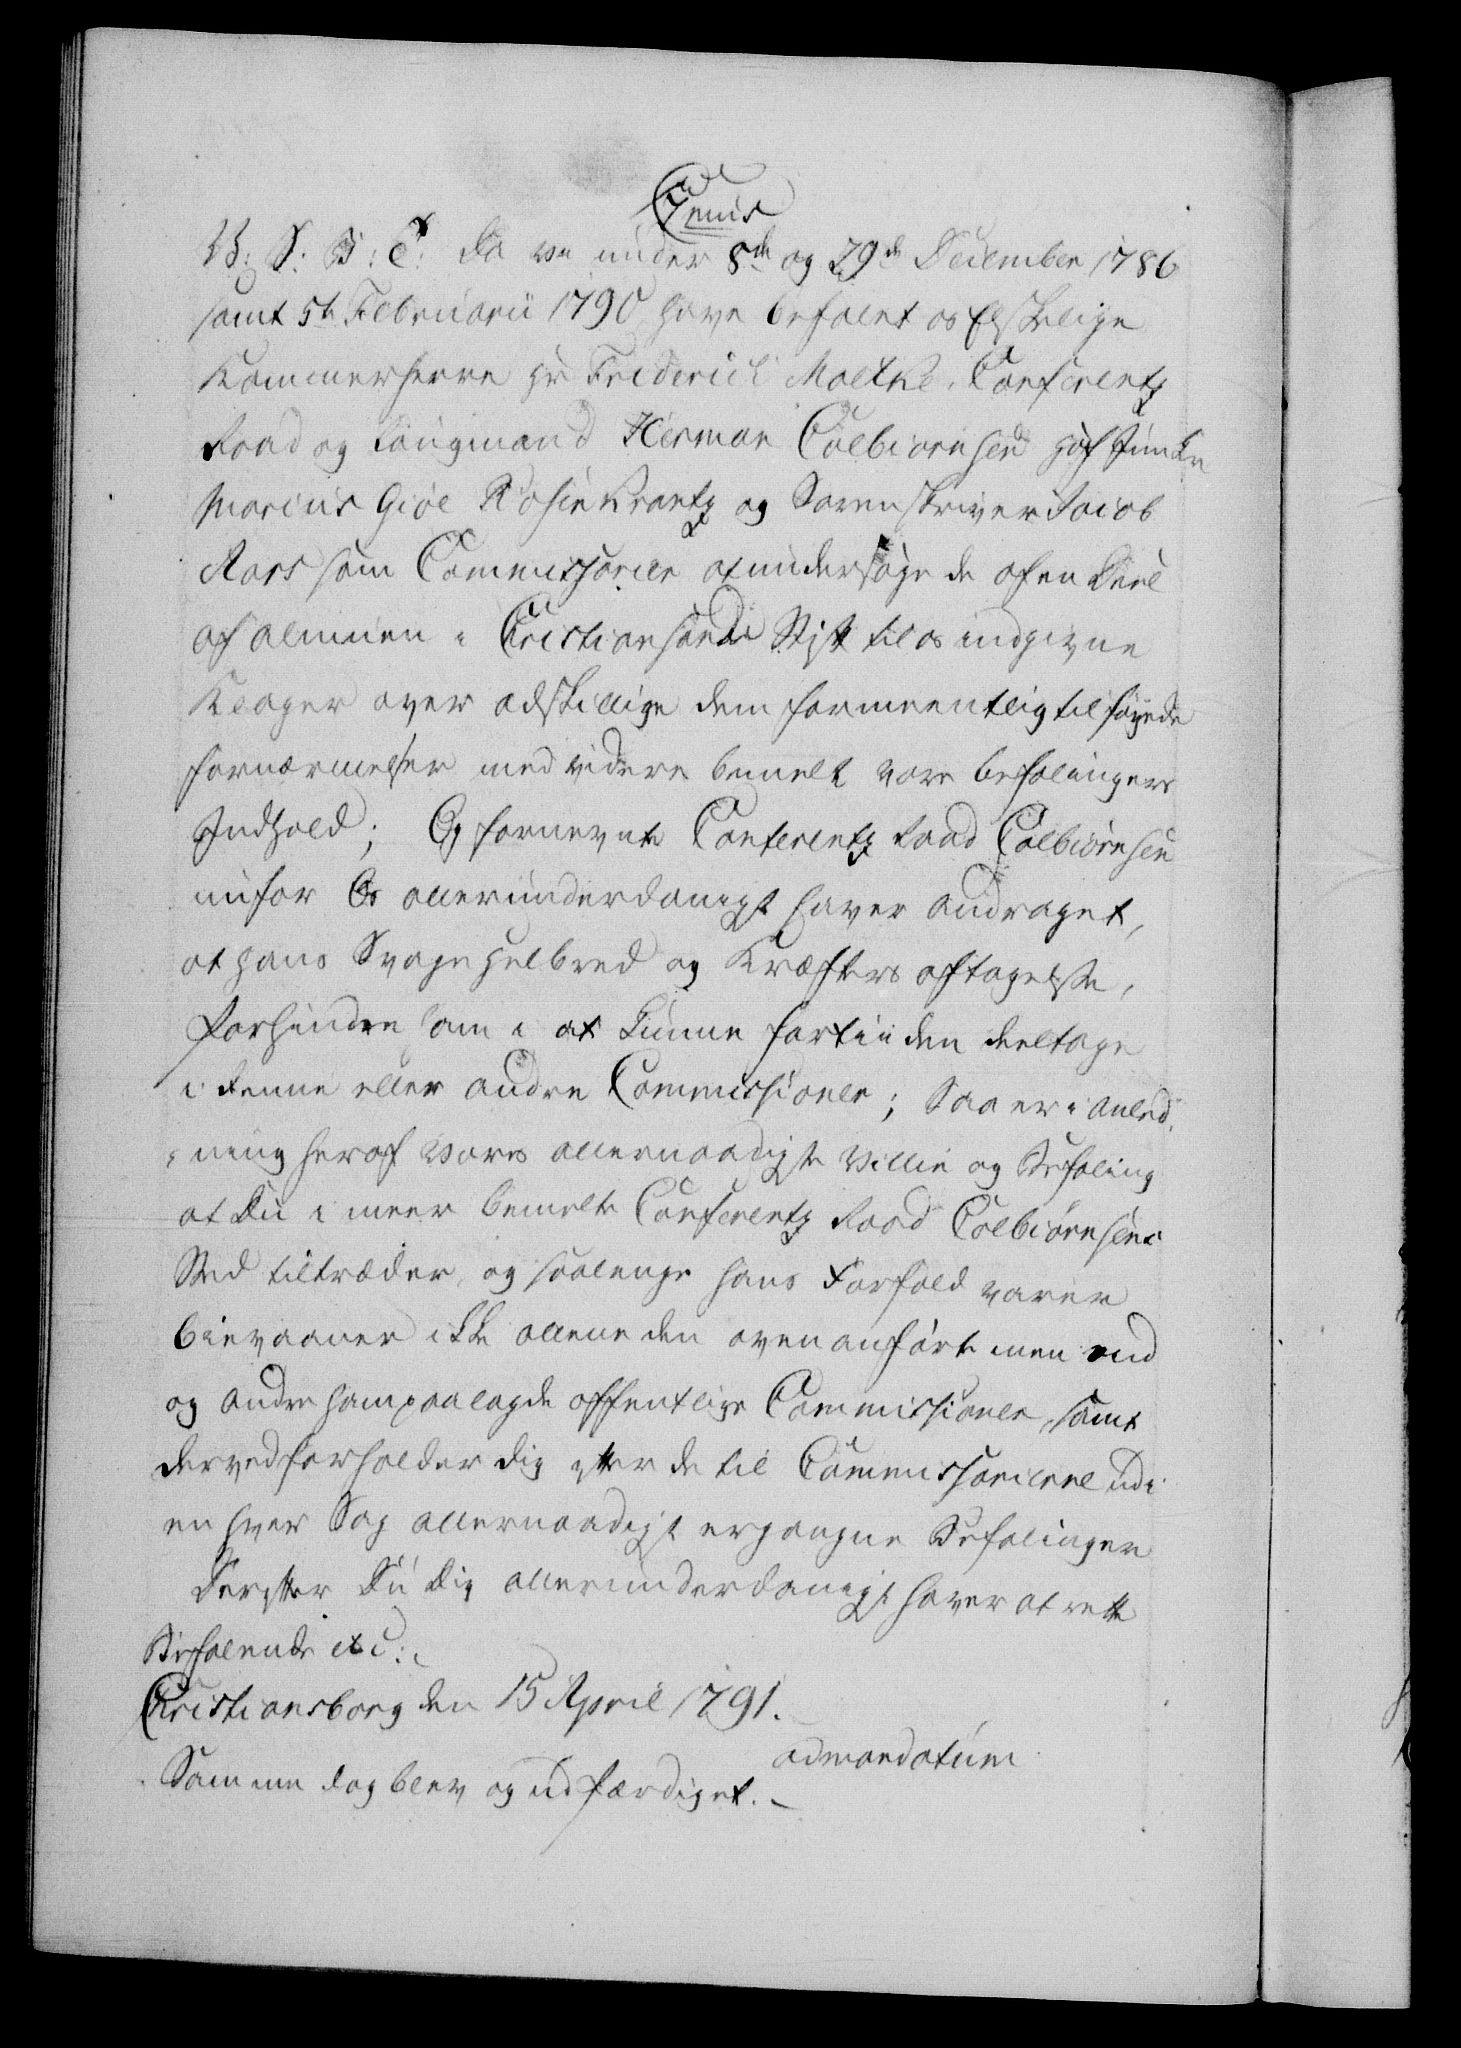 V: S: G: T: Da Vi under 8de og 29de December 1786
samt 5te Februarii 1790 have befalet os Elskelige
Kammerherre Hr Friderich Moltke, Conferentz
Raad og Laugmand Herman Colbiørnsen Hof Junker
Marcus Giøe Rosenkrantz og Sorenskriver Jacob
Aars som Commissarier at undersøge de af en Deel
af Almuen i Christiansands Stift til os indgivne
Klager over adskillige dem formeentlig tilføyede
fornærmelser med videre bemelt vore befalingers
Indhold; Og fornevnte Conferentz Raad Colbiørnsen
nu for Os allerunderdanigst haver andraget,
at hans Svage Helbred og Kræfters aftagelse,
forhindre ham i at kunne fortiiden deeltage
i denne eller andre Commissioner; Saa er i Anled,
,ning heraf Vores allernaadigste Villie og Befaling
at Du i meer bemelte Conferentz Raad Colbiørnsens
Sted tiltræder, og saalenge hans Forfald varer
bievaaner ikke allene den ovenanførte men end
og andre ham paalagde offentlige Commissioner, samt
derved forholder dig efter de til Commissarierne udi
en hver Sag allernaadigst ergangne Befalinger
Derefter Du Dig allerunderdanigst haver at rette
Befalende etc:
Christiansborg den 15 April 1791.
ad mandatum
Samme dag blev og udfærdiget.